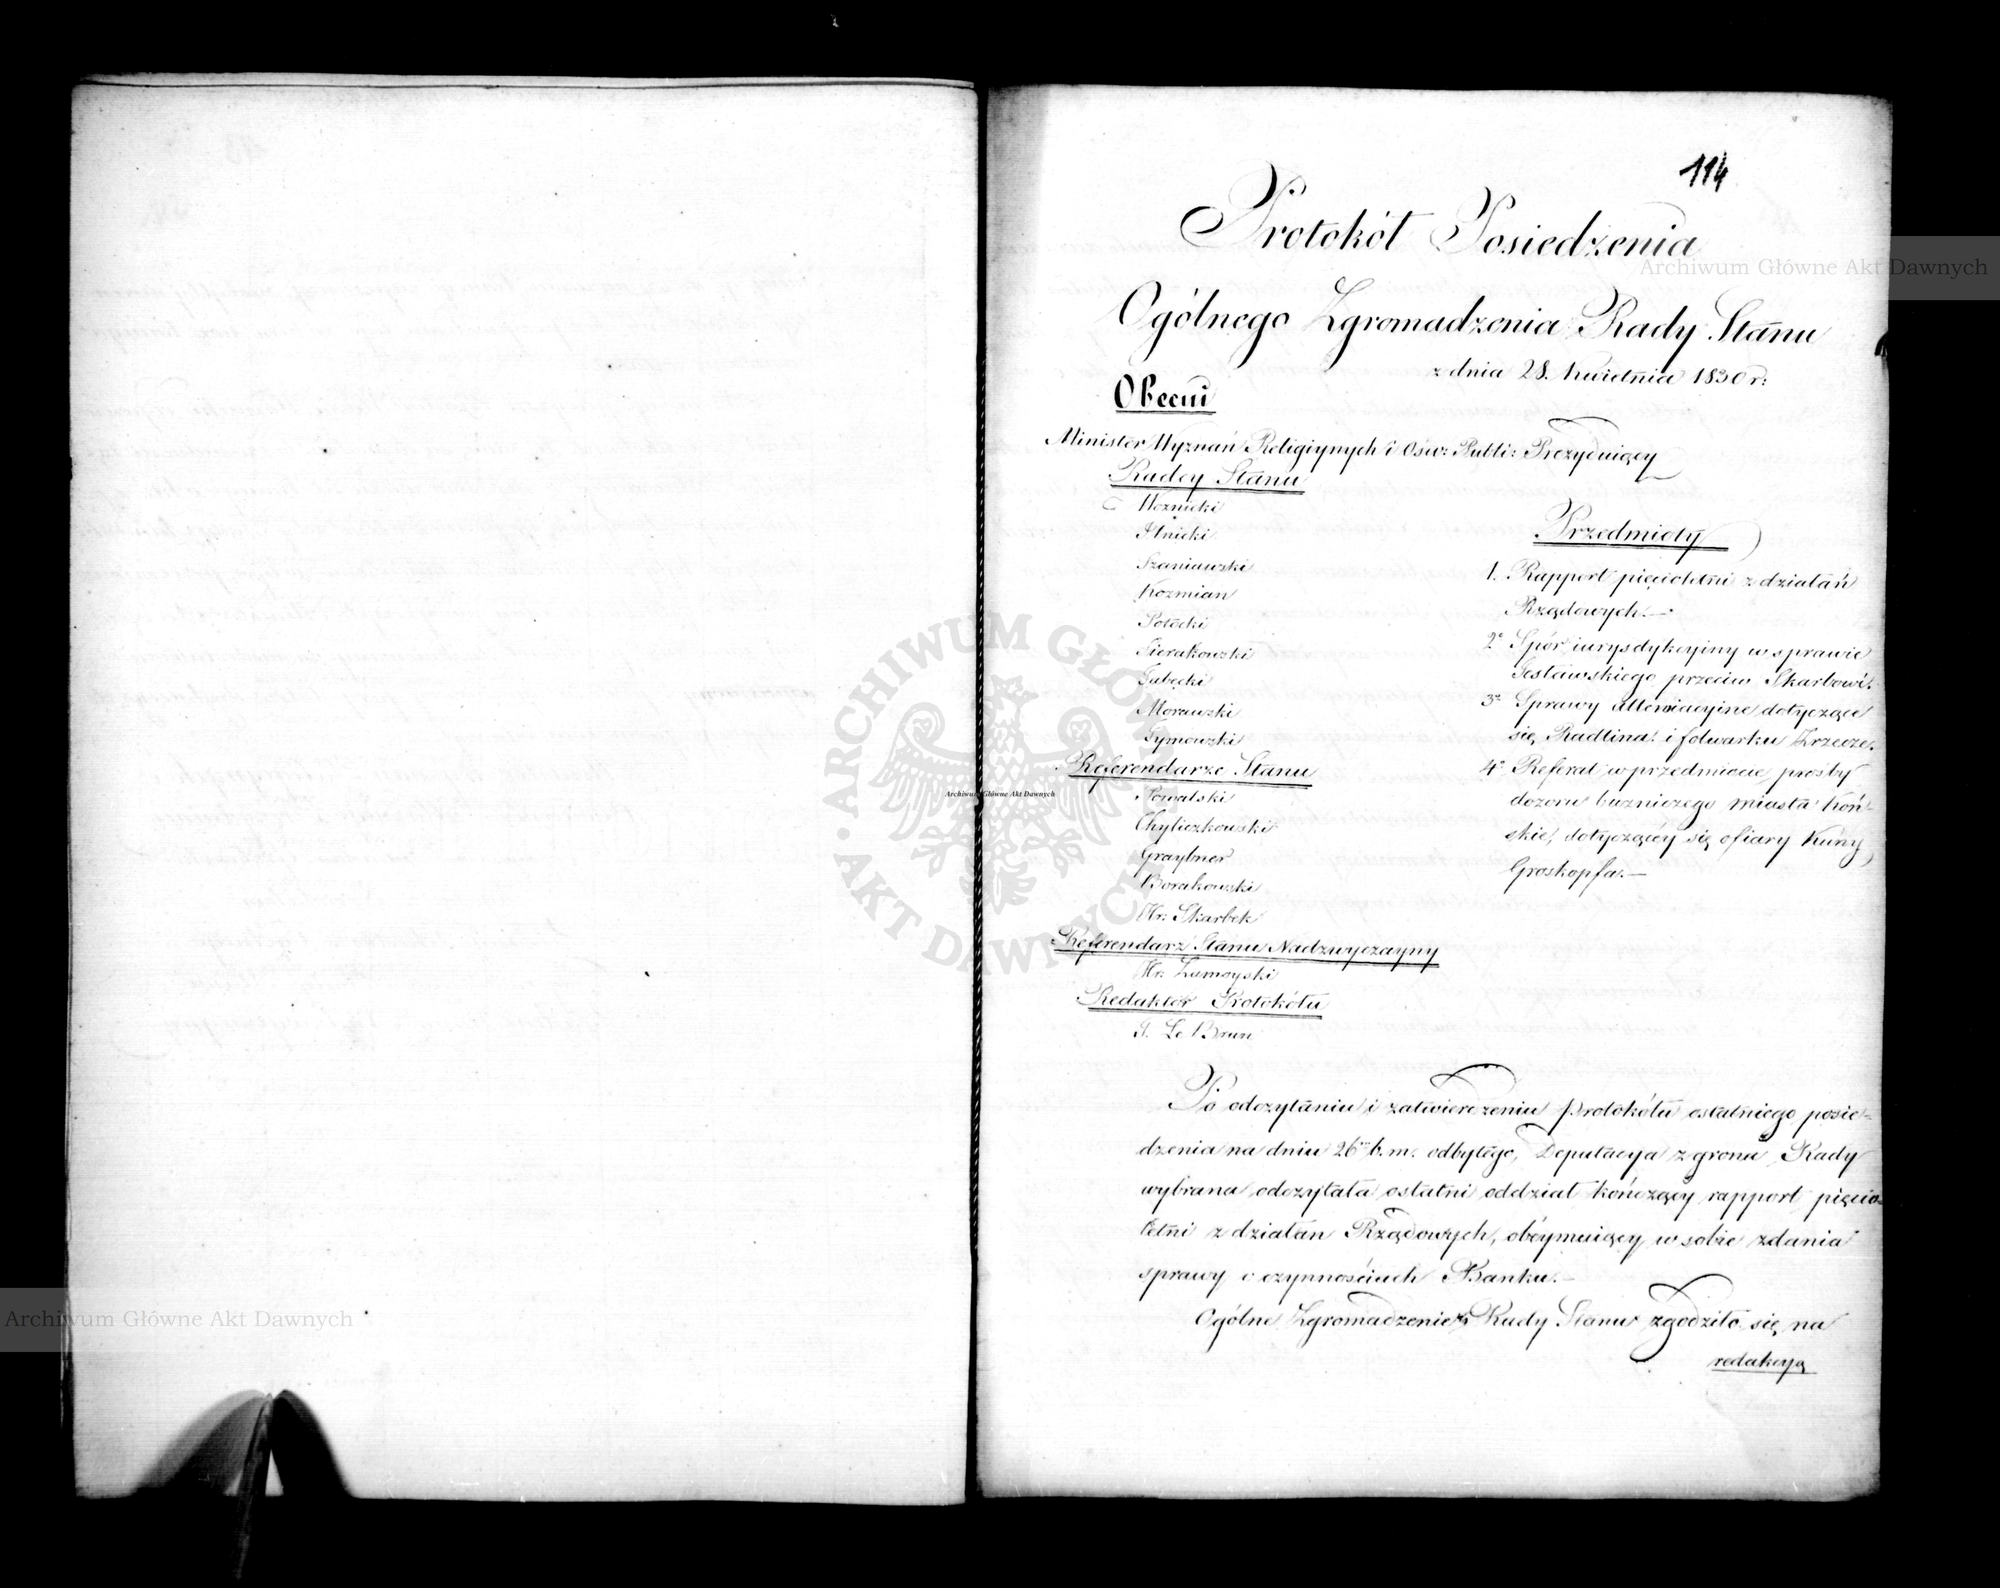 114
Protokół Posiedzenia
Ogólnego Zgromadzenia Rady Stanu
z dnia 28. Kwietnia 1830 r:
Obecni
Minister Wyznań Religiynych i Ośw: Publi: Prezyduiący
Radcy Stanu
Woznicki
Szaniawski
Kozmian
Potocki
Sierakowski
Lubęcki
Morawski
Tymowski
Referendarze Stanu
Nowalski
Chyliczkowski
Graybner
Borakowski
Hr: Skarbek
Referendarz Stanu Nadzwyczayny
Hr: Zamoyski
Redaktor Protokółu
J. Le Brun
Przedmioty
1. Rapport pięcioletni z działań
Rządowych.—
2° Spór iurysdykcyiny w sprawie
przeciw Skarbowi.
3° Sprawy dotyczące
się Radlina i folwarku
4° Referat w przedmiocie prośby
dozoru bużniczego miasta Koń-
skie, dotyczącéy się ofiary Kuny
Groskopfa.—
Po odczytaniu i zatwierdzeniu Protokółu ostatniego posie-
dzenia na dniu 26 b. m. odbytego, Deputacya z grona Rady
wybrana odczytała ostatni oddział kończący rapport pięcio-
letni z działań Rządowych, obeymuiący w sobie zdania
sprawy o czynnościach Banku.—
Ogólne Zgromadzenie Rady Stanu zgodziło się na
redakcyą
Archiwum Główne Akt Dawnych
Archiwum Główne Akt Dawnych
Archiwum Główne Akt Dawnych
ARCHIWUM GŁÓWNE AKT DAWNYCH